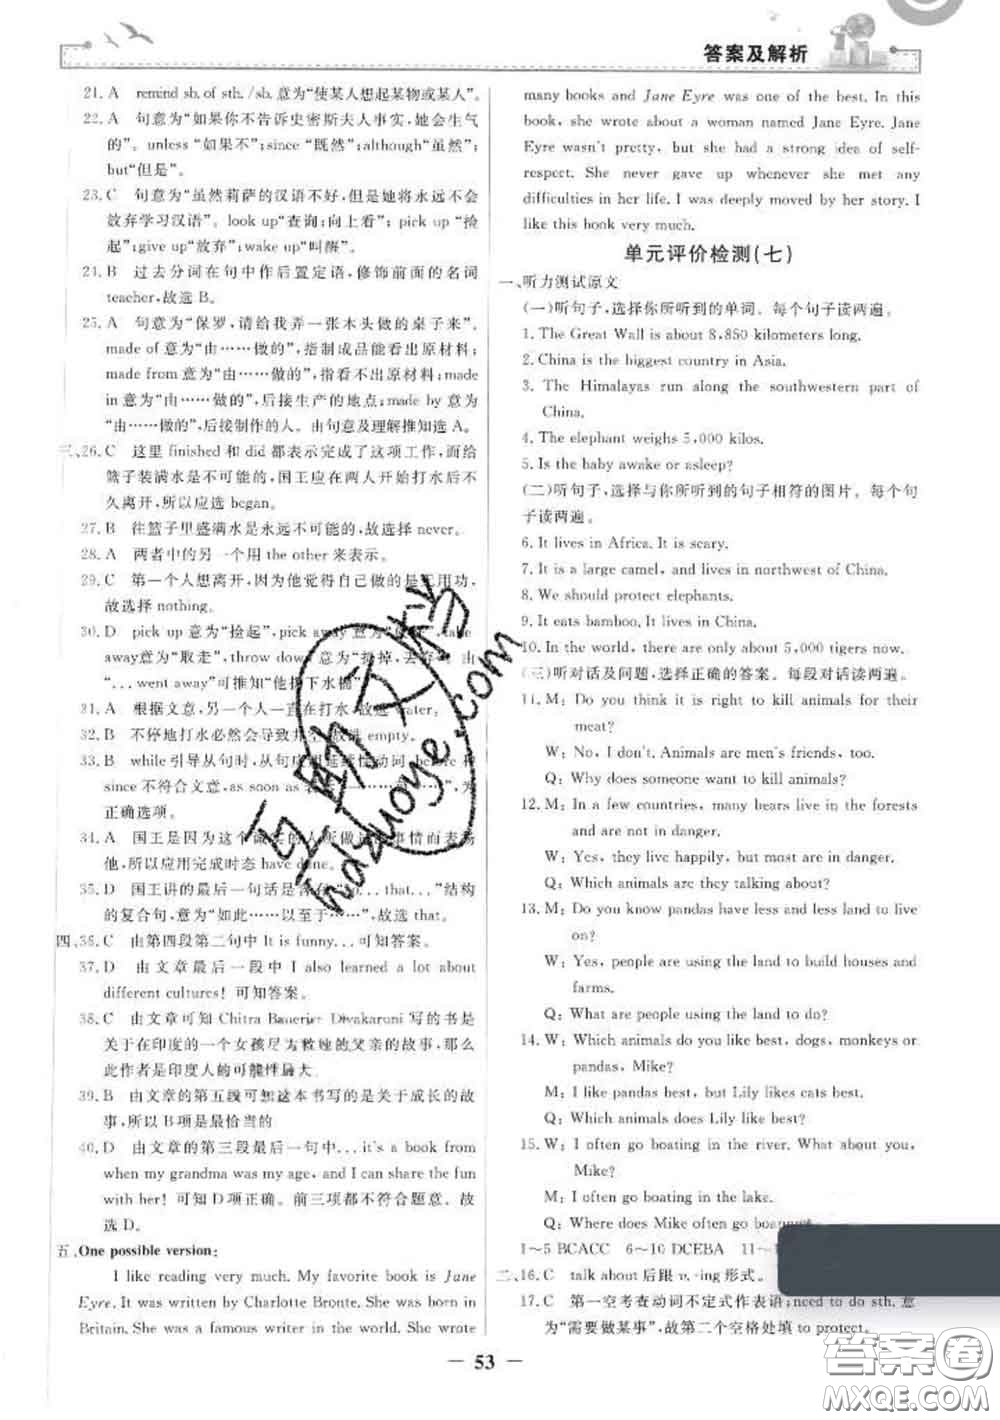 答案及解析
21. A remind sb. of sth./sb. 意为“使某人想起某物或某人”。
22. A 句意为“如果你不告诉史密斯夫人事实,她会生气
的”。unless “如果不”;since “既然”;although“虽然”;
but“但是”。
23. C 句意为“虽然莉萨的汉语不好,但是她将永远不会
放弃学习汉语”。look up“查询;向上看”;pick up “捡
起”;give up “放弃”;wake up“叫醒”。
21. B 过去分词在句中作后置定语,修饰前面的名词
teacher,故选 B。
25. A 句意为“保罗,请给我弄一张木头做的桌子来”。
made of 意为“由……做的”,指制成品能看出原材料;
made from 意为“由……做的”,指看不出原材料;made
in 意为“由……做的”,后接生产的地点;made by 意为
“由……做的”,后接制作的人。由句意及理解推知选 A。
三、26. C 这里 finished 和 did 都表示完成了这项工作,而给
篮子装满水是不可能的,国王应在两人开始打水后不
久离开,所以应选 began。
27. B 往篮子里盛满水是永远不可能的,故选择 never。
28. A 两者中的另一个用 the other 来表示。
29. C 第一个人想离开,因为他觉得自己做的是无用功,
故选择 nothing。
30. D pick up 意为“捡起”,pick away 意为 take
away意为“取走”,throw down 意为 由
“...went away”可推知“他扔下水桶
31. A 根据文意,另一个人一直在打水,故选 water。
32. B 不停地打水必然会导致井空,故选 empty。
33. B while 引导从句时,从句应用延续性动词,before 和
since 不符合文意,as soon as 表示 为
正确选项。
34. A 国王是因为这个诚实的人所做的事情而表扬
他,所以应用完成时态 have done。
35. D 国王讲的最后一句话是含有“so... that...”结构
的复合句,意为“如此……以至于……”,故选 that。
四、36. C 由第四段第二句中 It is funny... 可知答案。
37. D 由文章最后一段中 I also learned a lot about
different cultures! 可知答案。
38. C 由文章可知 Chitra Banerjee Divakaruni 写的书是
关于在印度的一个女孩尽力救她的父亲的故事,那么
此作者是印度人的可能性最大
39. B 由文章的第五段可知这本书写的是关于成长的故
事,所以 B项是最恰当的
40. D 由文章的第三段最后一句中...it's a book from
when my grandma was my age, and I can share the fun
with her! 可知 D 项正确。前三项都不符合题意。故
选 D。
五、One possible version:
I like reading very much. My favorite book is Jane
Eyre. It was written by Charlotte Bronte. She was born in
Britain. She was a famous writer in the world. She wrote
many books and Jane Eyre was one of the best. In this
book, she wrote about a woman named Jane Eyre. Jane
Eyre wasn't pretty, but she had a strong idea of self-
respect. She never gave up whenever she met any
difficulties in her life. I was deeply moved by her story. I
like this book very much.
单元评价检测(七)
一、听力测试原文
(一)听句子,选择你所听到的单词。每个句子读两遍。
1. The Great Wall is about 8,850 kilometers long.
2. China is the biggest country in Asia.
3. The Himalayas run along the southwestern part of
China.
4. The elephant weighs 5,000 kilos.
5. Is the baby awake or asleep?
(二)听句子,选择与你所听到的句子相符的图片。每个句
子读两遍。
6. It lives in Africa. It is scary.
7. It is a large camel, and lives in northwest of China.
8. We should protect elephants.
9. It eats bamboo. It lives in China.
10. In the world, there are only about 5,000 tigers now.
(三)听对话及问题,选择正确的答案。每段对话读两遍。
11. M: Do you think it is right to kill animals for their
meat?
W: No, I don't. Animals are men's friends, too.
Q: Why does someone want to kill animals?
12. M: In a few countries, many bears live in the forests
and are not in danger.
W: Yes, they live happily, but most are in danger.
Q: Which animals are they talking about?
13. M: Do you know pandas have less and less land to live
on?
W: Yes, people are using the land to build houses and
farms.
Q: What are people using the land to do?
14. W: Which animals do you like best, dogs, monkeys or
pandas, Mike?
M: I like pandas best, but Lily likes cats best.
Q: Which animals does Lily like best?
15. W: I often go boating in the river. What about you,
Mike?
M: I often go boating in the lake.
Q: Where does Mike often go boating?
1～5 BCACC 6～10 DCEBA 11～1
二、16. C talk about 后跟 v. -ing 形式。
17. C 第一空考查动词不定式作表语;need to do sth. 意
为“需要做某事”,故第二个空格处填 to protect。
— 53 —
互助文档
hdzuoye.com
答案卷
MXQE.COM